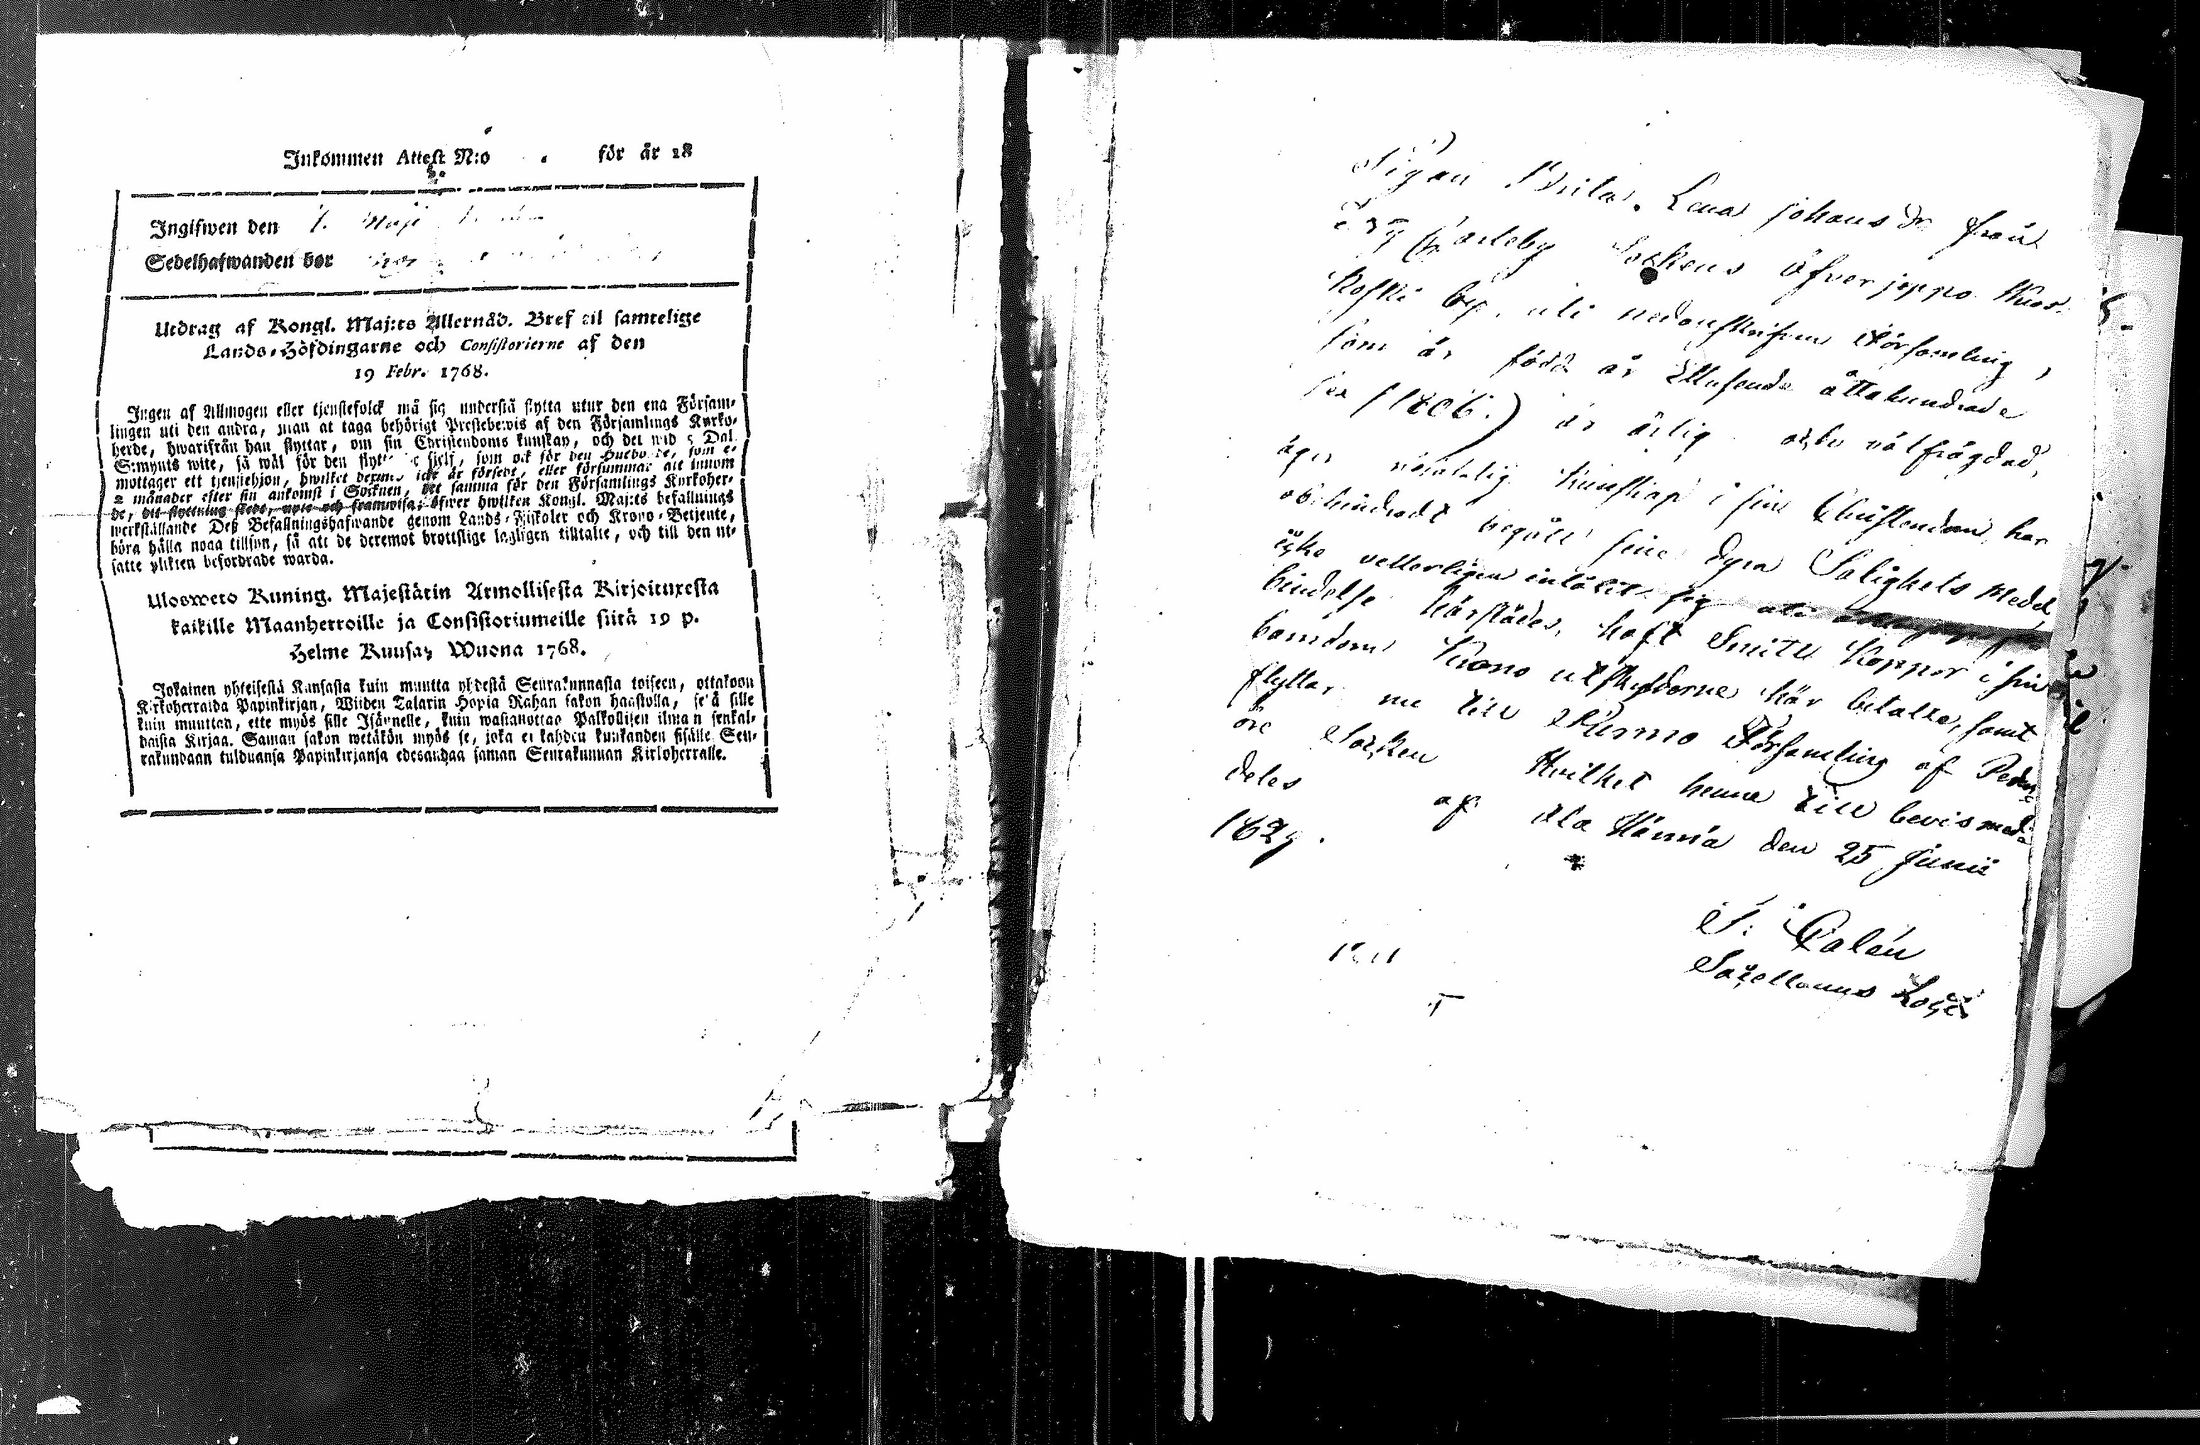 Inkommen Attest N:o . för år 18
Ingifwen den 1. Maji
Sedelhafwanden bor
Utdrag af Kongl. Maj:ts Allernåd. Bref til samtelige
Lands-Höfdingarne och Consistorierne af den
19 Febr. 1768.
Ingen af Allmogen eller tjenstefolck må sig understå flytta utur den ena Försam-
lingen uti den andra, utan at taga behörigt Prestebewis af den Församlings Kyrko-
herde, hwarifrån han flyttar, om sin Christendoms kunskap, och det wid 5 Dal.
S:mynts wite, så wäl för den sjelf, som ock för den som e-
mottager ett tjenstehjon, hwilket icke är försedt, eller försummar att innom
2 månader efter sin ankomst i Socknen, det samma för den Församlings Kyrkoher-
de, öfwer hwilken Kongl. Maj:ts befallnings
werkställande Deß Befallningshafwande genom Lands-Fiskaler och Krono-Betjente,
böra hålla noga tillsyn, så att de deremot brottslige lagligen tilltalte, och till den ut-
satte plikten befordrade warda.
Ulosweto Kuning. Majestätin Armollisesta Kirjoituxesta
kaikille Maanherroille ja Consistoriumeille siitä 19 p.
Helme Kuusa, Wuona 1768.
Jokainen yhteisestä Kansasta kuin muutta yhdestä Seurakunnasta toiseen, ottakoon
Kirkoherralda Papinkirjan, Wiiden Talarin Hopia Rahan sakon haastolla, se'ä sille
kuin muuttaa, ette myös sille Isännelle, kuin wastanottaa Palkollisen ilman senkal-
daista Kirjaa. Saman sakon wetäkön myös se, joka ei kahden kuukauden sisälle Seu-
rakundaan tulduansa Papinkirjansa edesandaa saman Seurakunnan Kirkoherralle.
Pigan Brita Lena Johans dr från
Ny Carleby Sockens öfverjeppo
Koski by, uti nedanskrifven Församling,
som är född år Ettusende åttahundrade
sex (1806.) är ärlig och välfrägdad,
äger nöjaktig kunskap i sin Christendom, har
obehindradt begått sine dyra Salighets Medel,
icke vetterligen inlåtit sig uti
bindelse härstädes, haft Smitt Koppor i sin
barndom, Krono utskylderne här betalte, samt
flyttar nu till Purmo Församling af Peders
öre Socken Hvilket henne till bevis med-
deles af Ala Härmä den 25 Junii
1829.
Sacellanus Loci